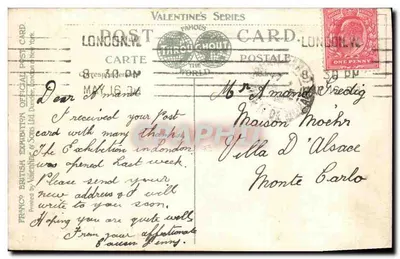 VALENTINE'S SERIES
FAMOUS
THROUGHOUT
THE
WORLD
POST CARD.
CARTE POSTALE
LONDON.W.
8. 30 PM
MAY 18
LONDON.W.
8 30 PM
ONE PENNY
FRANCO BRITISH EXHIBITION OFFICIAL POST CARD.
Dear Amand
I received your Post
card with many thanks
The Exhibition in London
was opened last week.
Please send your
new address & I will
write to you soon.
Hoping you are quite well
From your affectionate
Cousin
Mr Amand
Maison Moehr
Villa D'Alsace
Monte Carlo